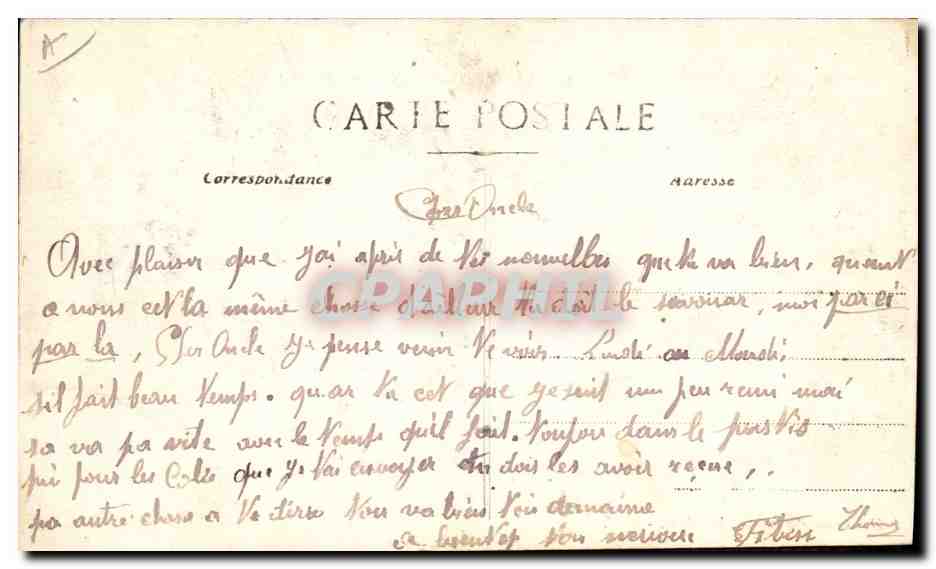 A
CARTE POSTALE
Correspondance
Adresse
Cher Oncle
Avec plaisir que j'ai apris de tes nouvelles que tu va bien, quant
a nous cet la même chose d'ailleur tu doit le savouar, moi par ci
par la, Cher Oncle je pense venir te voir Lundi ou Mardi
sil fait beau temps. quar tu cet que je suit un peu remi mai
sa va pa vite avec le temps qu'il fait. toujou dans le
pui pour les Colis que je t'ai envoyer tu dois les avoir reçue,.
pa autre chose a te dire tou va bien
a bientot ton neveu
CPAPHIL